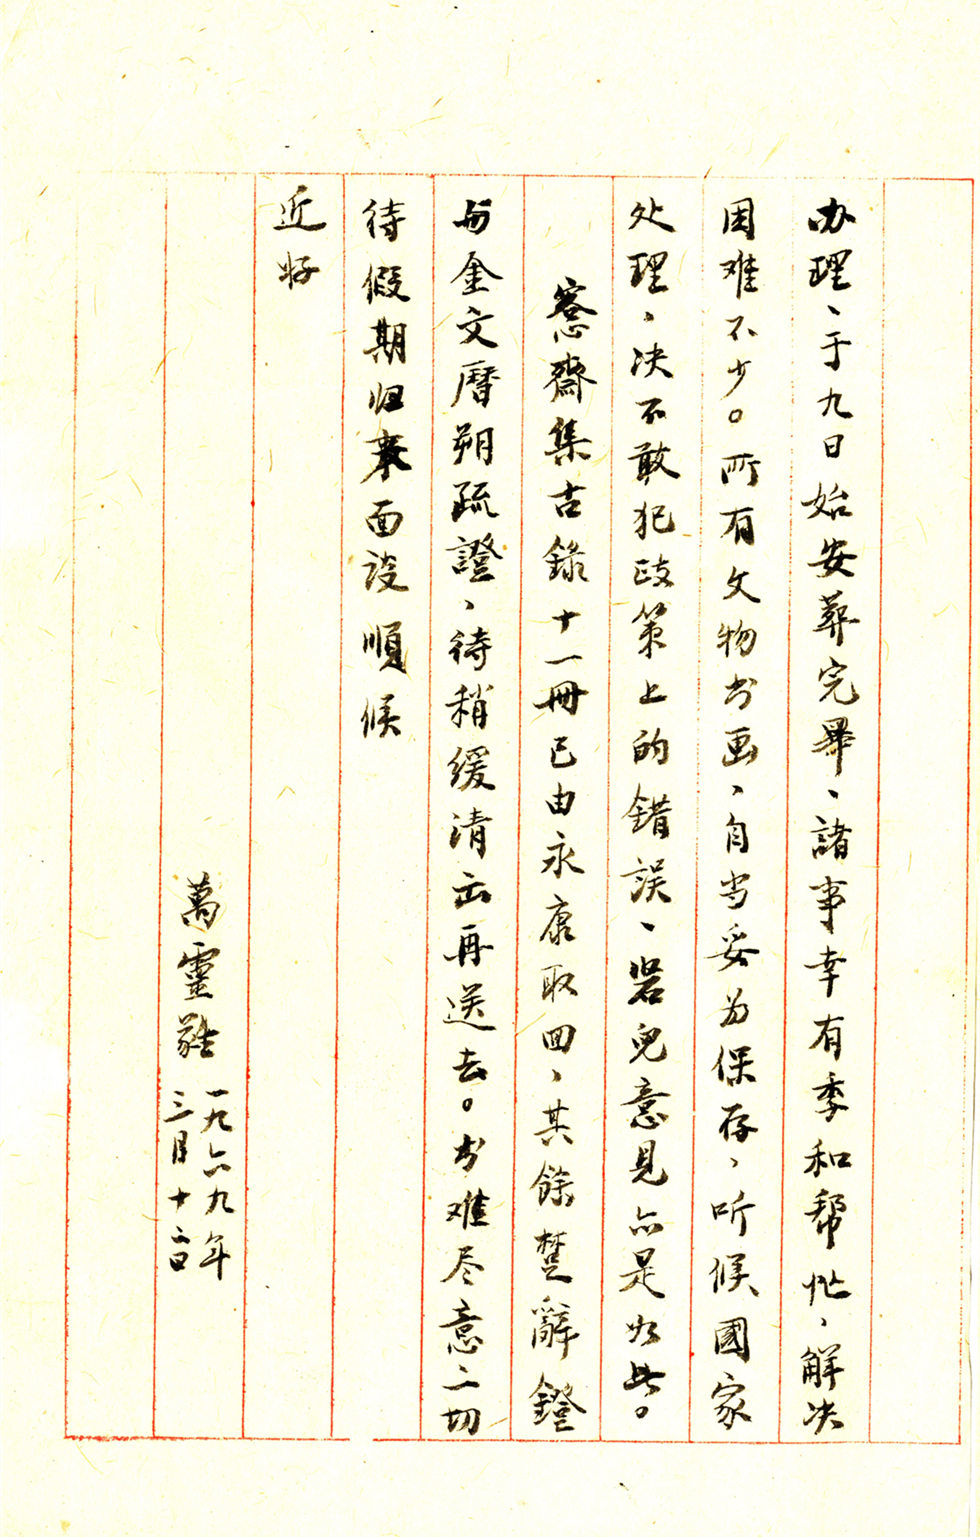 办理、于九日始安葬完畢、諸事幸有季和帮忙、解决
困难不少。所有文物书画、自当妥为保存、听候國家
处理、决不敢犯政策上的错误、岩兒意見亦是如此。
愙齋集古錄十一冊已由永康取回、其餘楚辭鐙
与金文曆朔疏證、待稍缓清出再送去。书难尽意一切
待假期归来面谈順候
近好
萬靈蕤
一九六九年
三月十二日